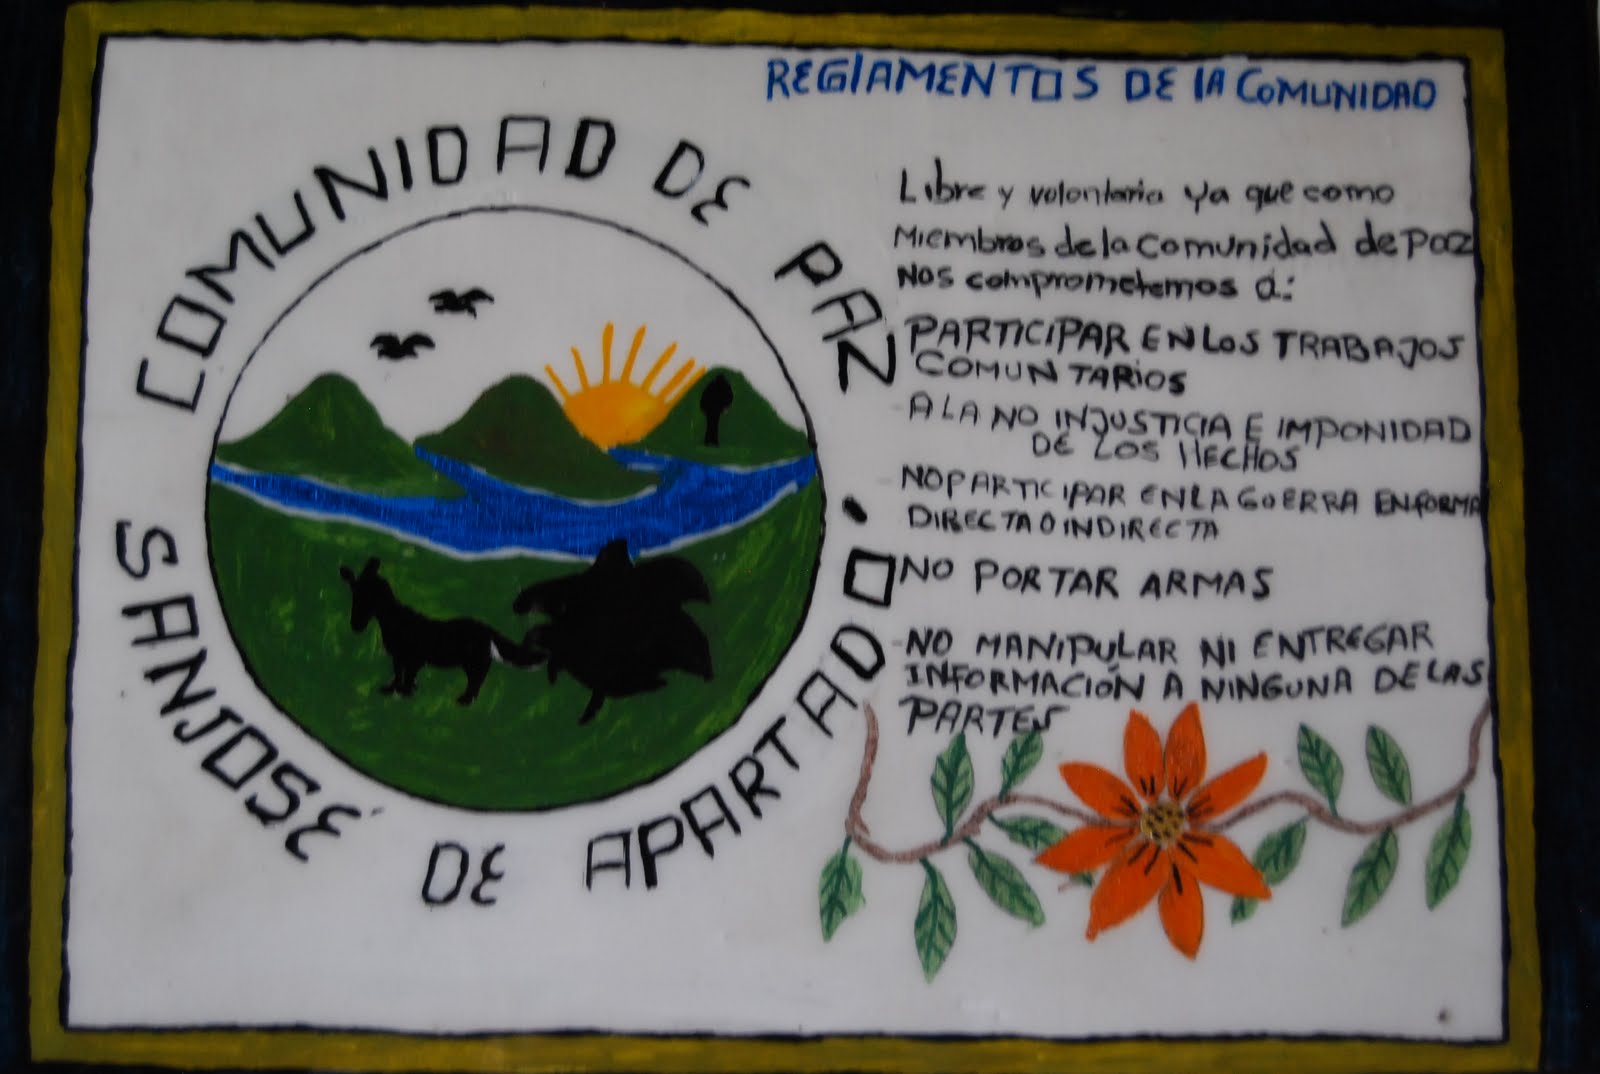 COMUNIDAD DE PAZ
SAN JOSE DE APARTADO.
REGLAMENTOS DE LA COMUNIDAD
Libre y volontaria ya que como
Miembros de la comunidad de Paz
Nos comprometemos a:
PARTICIPAR EN LOS TRABAJOS
COMUNTARIOS
-A LA NO INJUSTICIA E IMPONIDAD
DE LOS HECHOS
-NO PARTICIPAR EN LA GUERRA EN FORMA
DIRECTA O INDIRECTA
-NO PORTAR ARMAS
-NO MANIPULAR NI ENTREGAR
INFORMACIÓN A NINGUNA DE LAS
PARTES